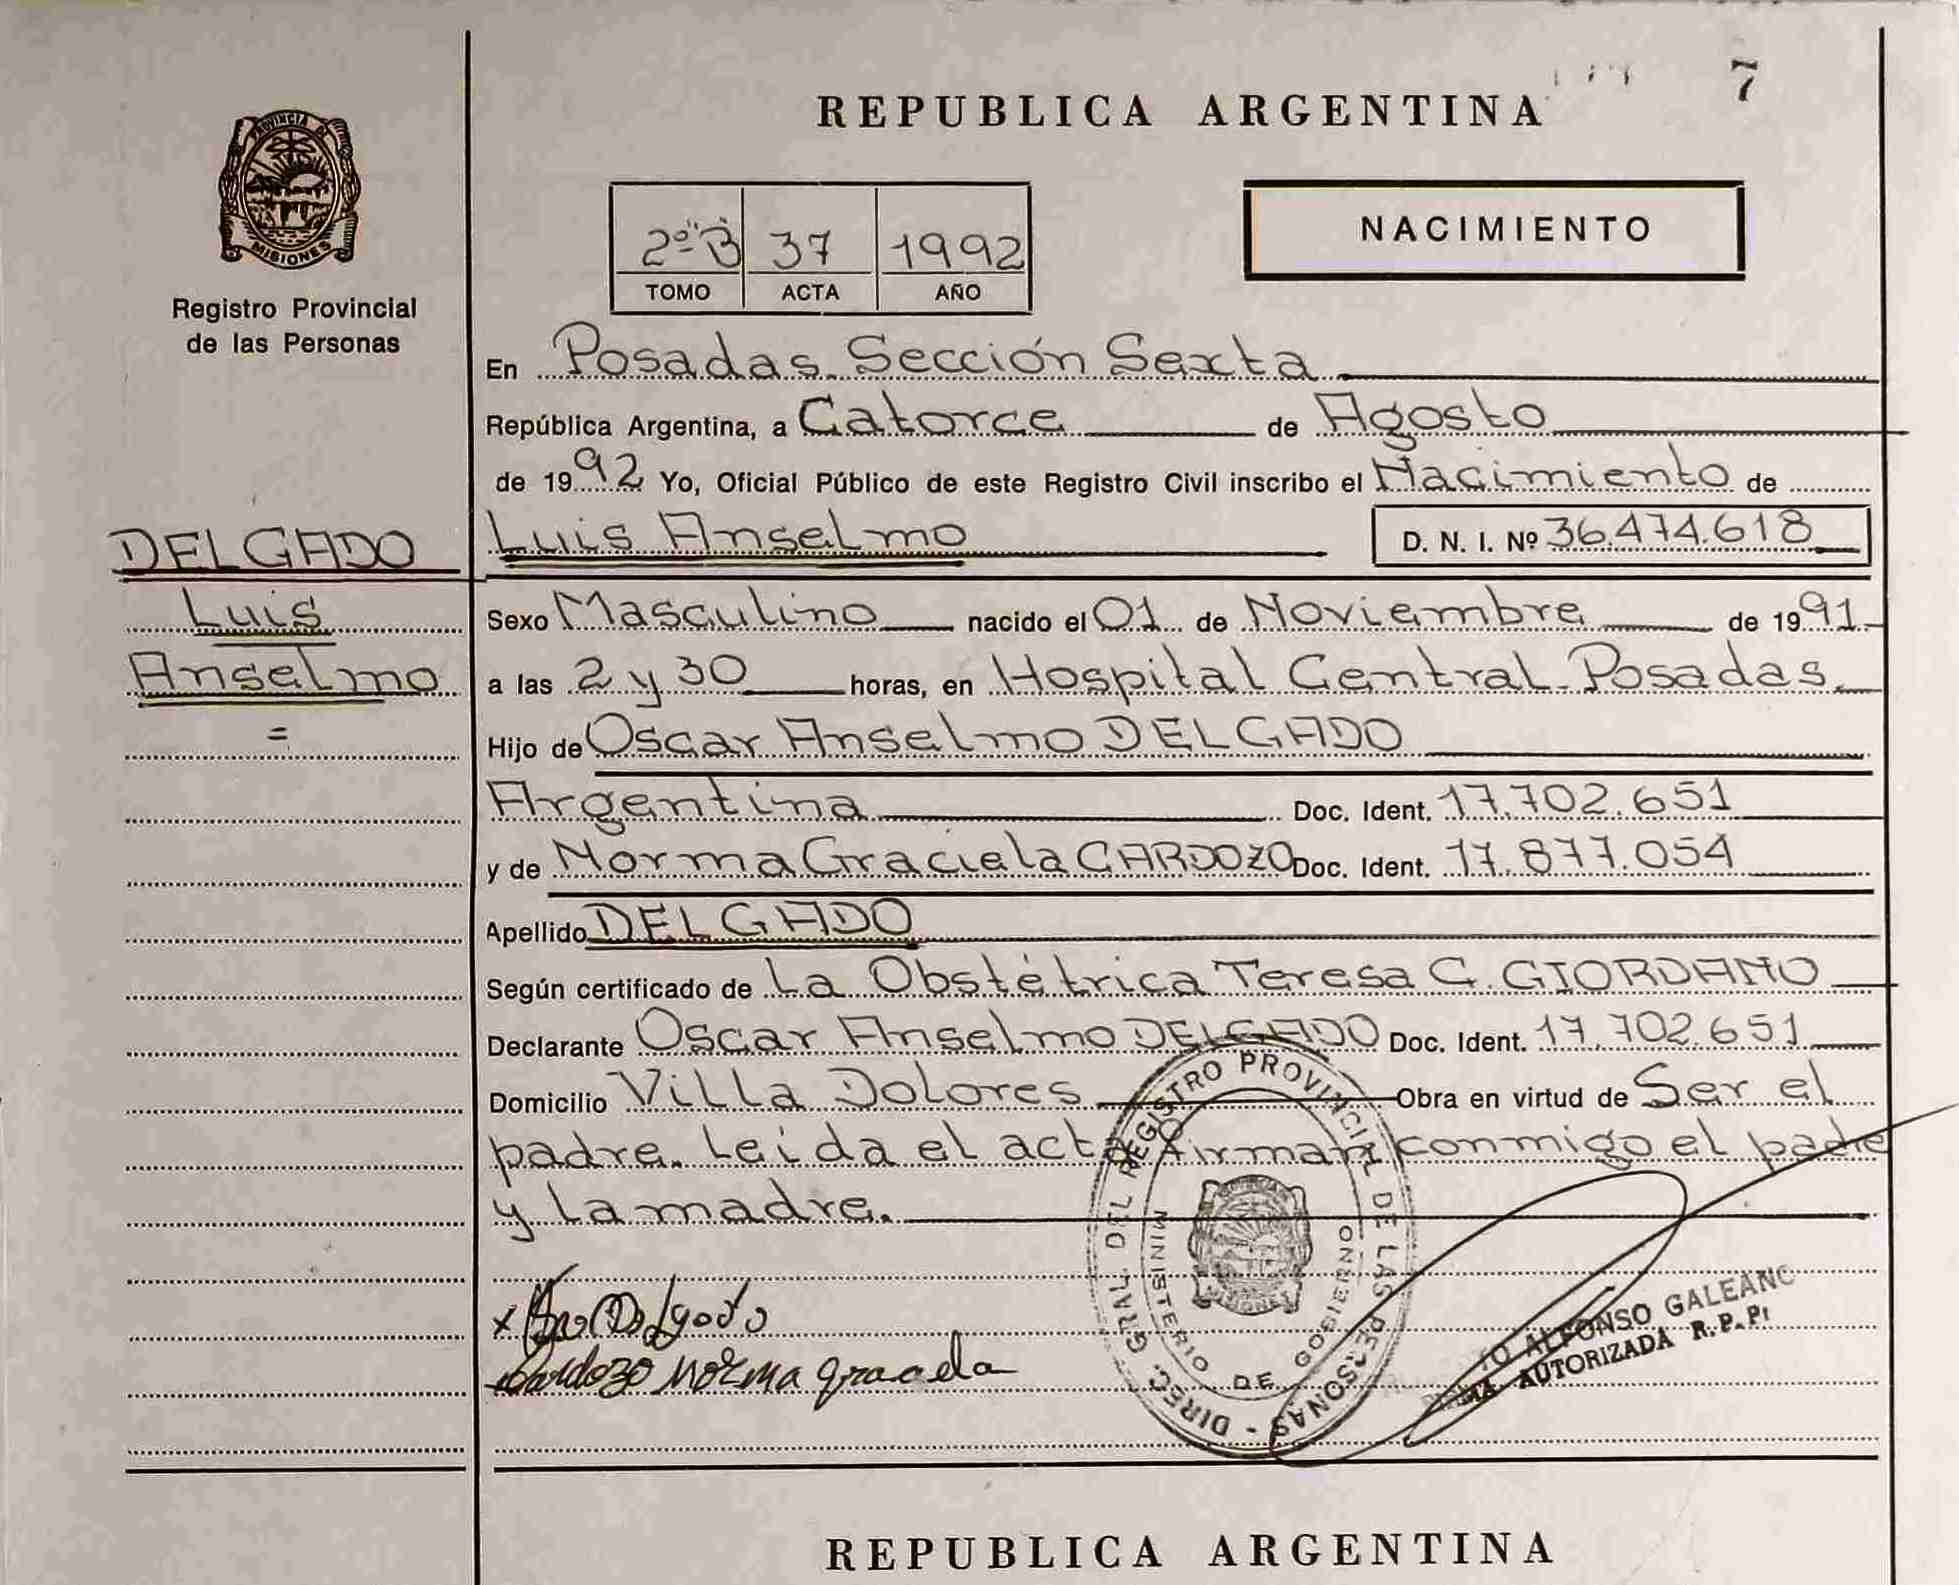 7
REPUBLICA ARGENTINA
PROVINCIA DE
MISIONES
Registro Provincial
de las Personas
2º "B" 37 1992
TOMO ACTA AÑO
NACIMIENTO
En Posadas Sección Sexta
República Argentina, a Catorce de Agosto
de 1992 Yo, Oficial Público de este Registro Civil inscribo el Nacimiento de
DELGADO Luis Anselmo D. N. I. Nº 36.474.618
Luis Sexo Masculino nacido el 01 de Noviembre de 1991
Anselmo a las 2 y 30 horas, en Hospital Central Posadas.
= Hijo de Oscar Anselmo DELGADO
Argentina Doc. Ident. 17.702.651
y de Norma Graciela CARDOZO Doc. Ident. 17.877.054
Apellido DELGADO
Según certificado de La Obstétrica Teresa G. GIORDANO
Declarante Oscar Anselmo DELGADO Doc. Ident. 17.702.651
Domicilio Villa Dolores Obra en virtud de Ser el
padre. Leída el acta firman conmigo el padre
y la madre.
DIREC. GRAL. DEL REGISTRO PROVINCIAL DE LAS PERSONAS -
MINISTERIO DE GOBIERNO
MISIONES
x Delgado
Cardozo Norma graciela
ALFONSO GALEANO
AUTORIZADA R.P.P.
REPUBLICA ARGENTINA